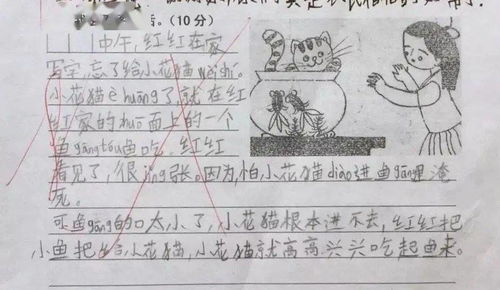 。(10分)
中午,红红在家
写字,忘了给小花猫wèishí。
小花猫è huāng了,就在红
红家的zhuō面上的一个
鱼gāng偷鱼吃,红红
看见了,很jǐng张。因为,怕小花猫diào进鱼gāng里淹
死。
可鱼gāng的口太小了,小花猫根本进不去,红红把
小鱼把给小花猫,小花猫就高高兴兴吃起鱼来。